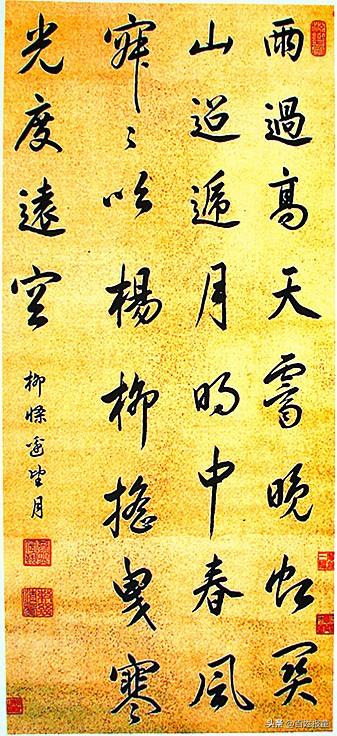 雨過高天霽晚虹關
山迢遞月明中春風
寂〻吹楊柳搖曳寒
光度遠空
柳條邊望月
头条